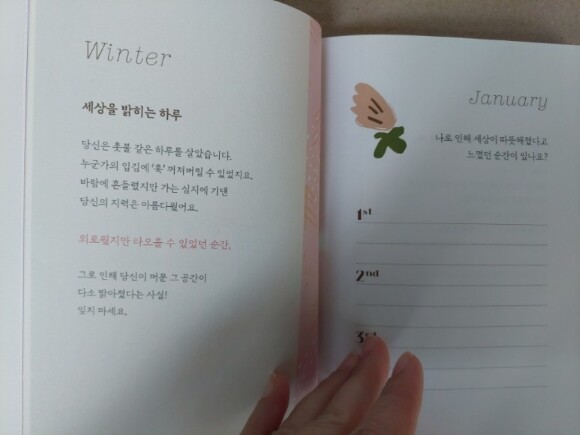 Winter
세상을 밝히는 하루
당신은 촛불 같은 하루를 살았습니다.
누군가의 입김에 '훅' 꺼져버릴 수 있었지요.
바람에 흔들렸지만 가는 심지에 기댄
당신의 지력은 아름다웠어요.
외로웠지만 타오를 수 있었던 순간,
그로 인해 당신이 머문 그 공간이
다소 밝아졌다는 사실!
잊지 마세요.
January
나로 인해 세상이 따뜻해졌다고
느꼈던 순간이 있나요?
1st
2nd
3rd